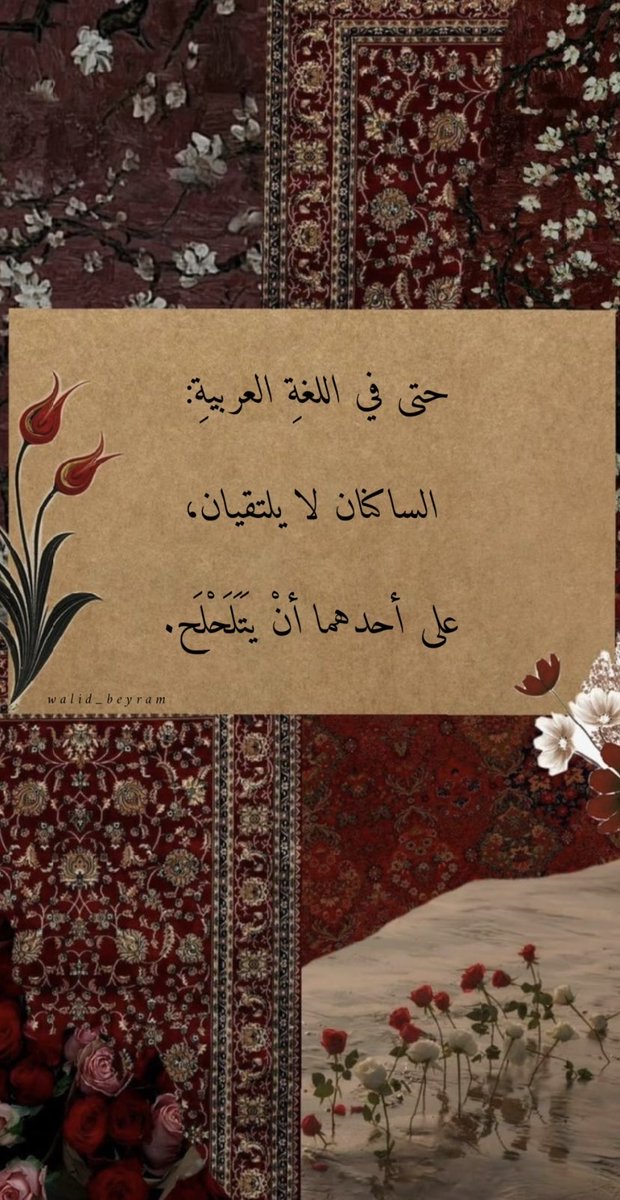 حتى في اللغةِ العربيةِ:
الساكنان لا يلتقيان،
على أحدهما أنْ يتَلَحْلَح.
walid_beyram